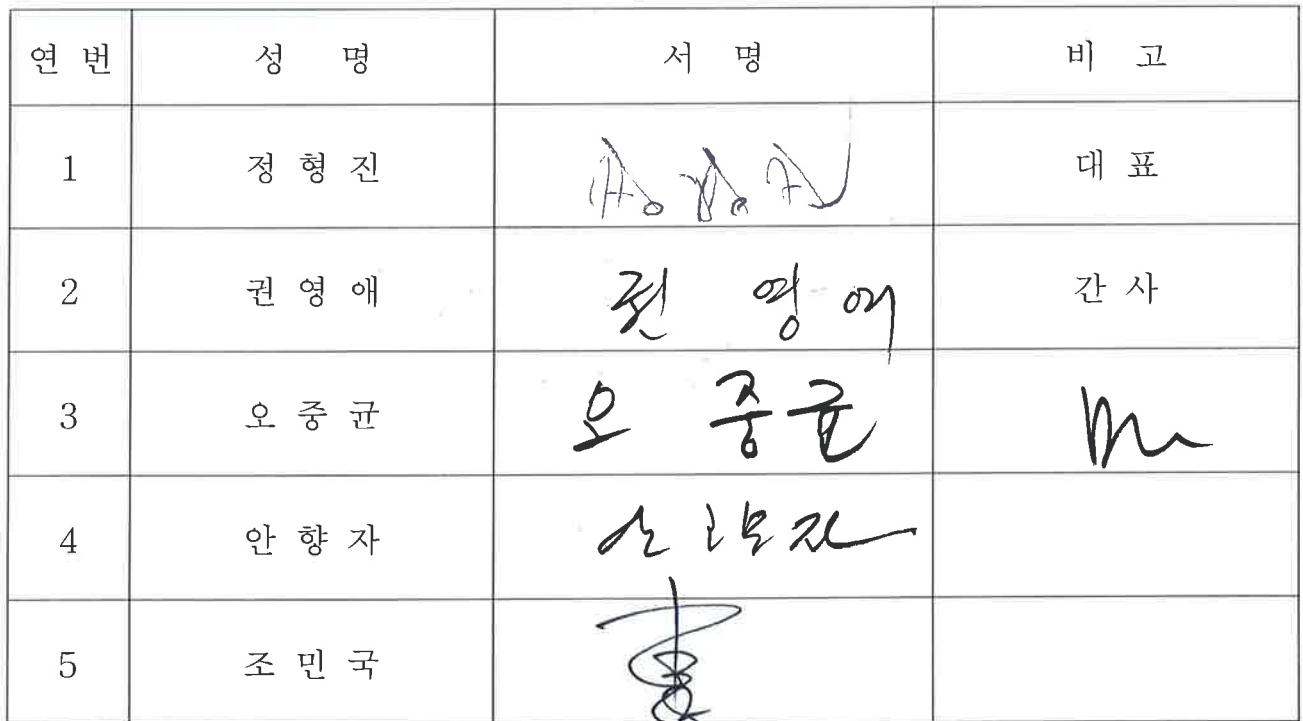 연 번 성 명 서 명 비 고
1 정 형 진 대 표
2 권 영 애 권 영 애 간 사
3 오 중 균 오 중 균
4 안 향 자
5 조 민 국